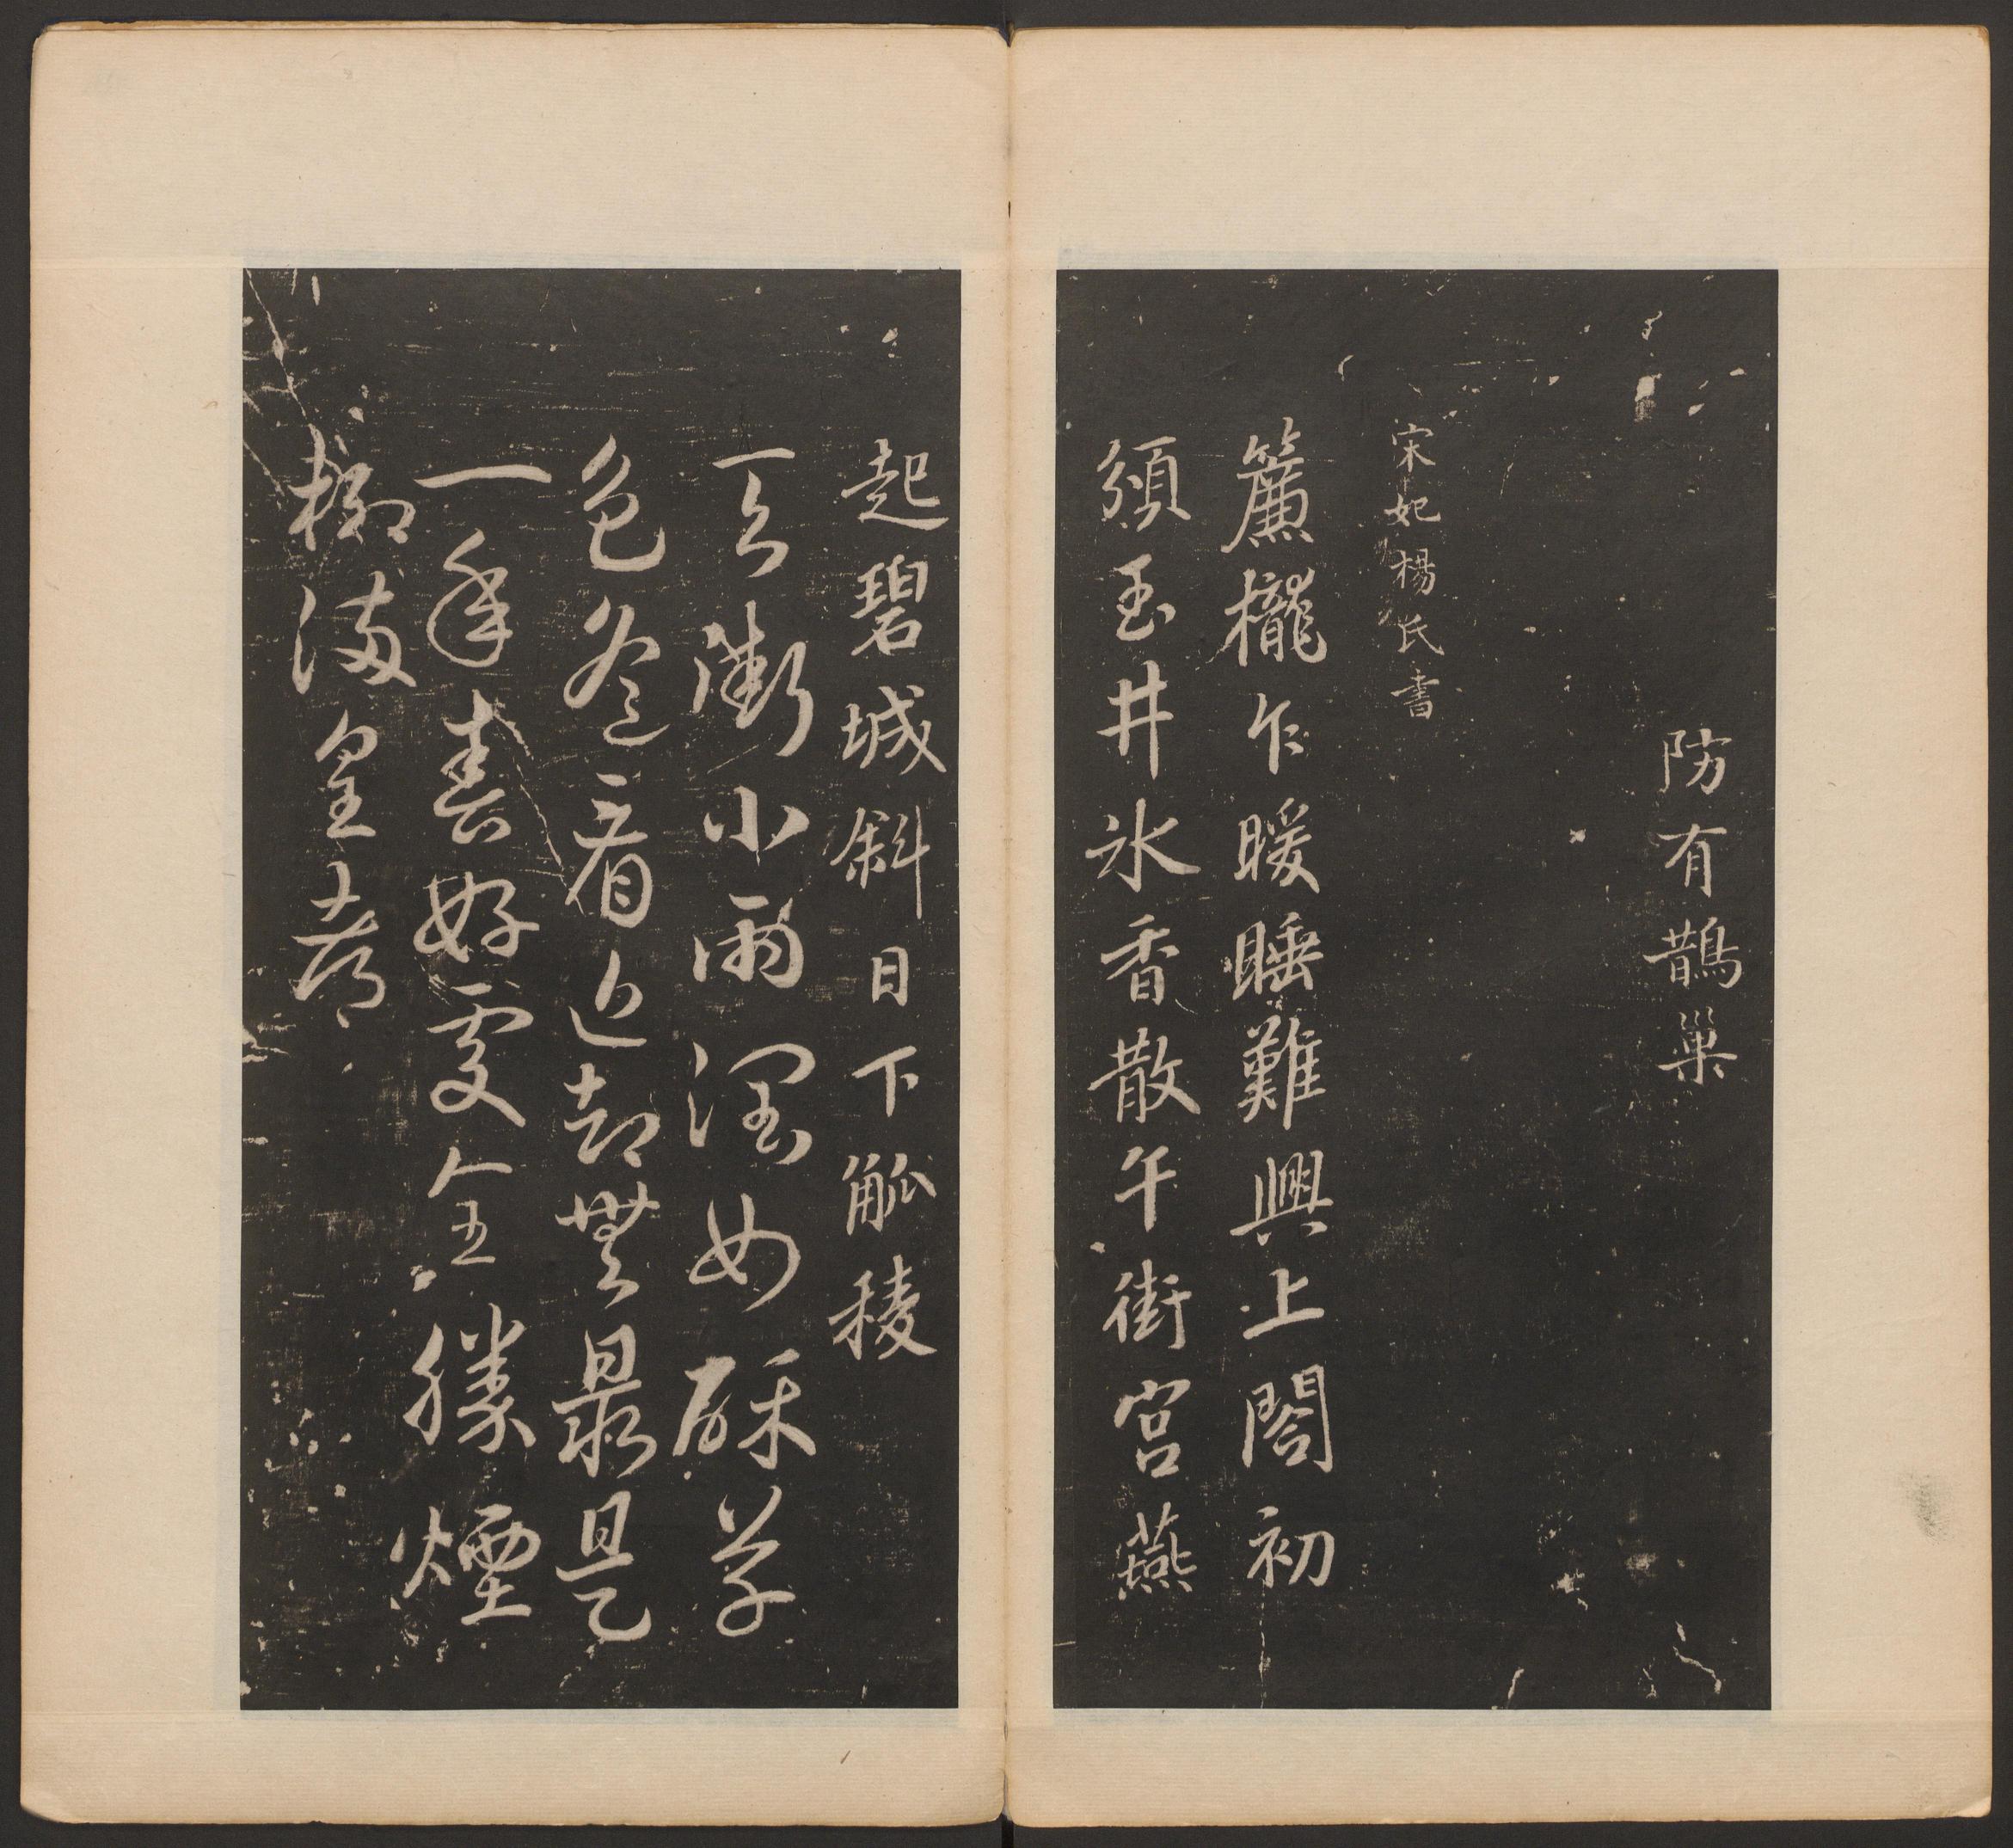 防有鵲巢
宋妃楊氏書
簾櫳乍暖睡難興上閤初
須玉井氷香散午街宮燕
起碧城斜日下觚稜
天街小雨潤如酥草
色遙看近却無最是
一年春好處全勝煙
柳滿皇都